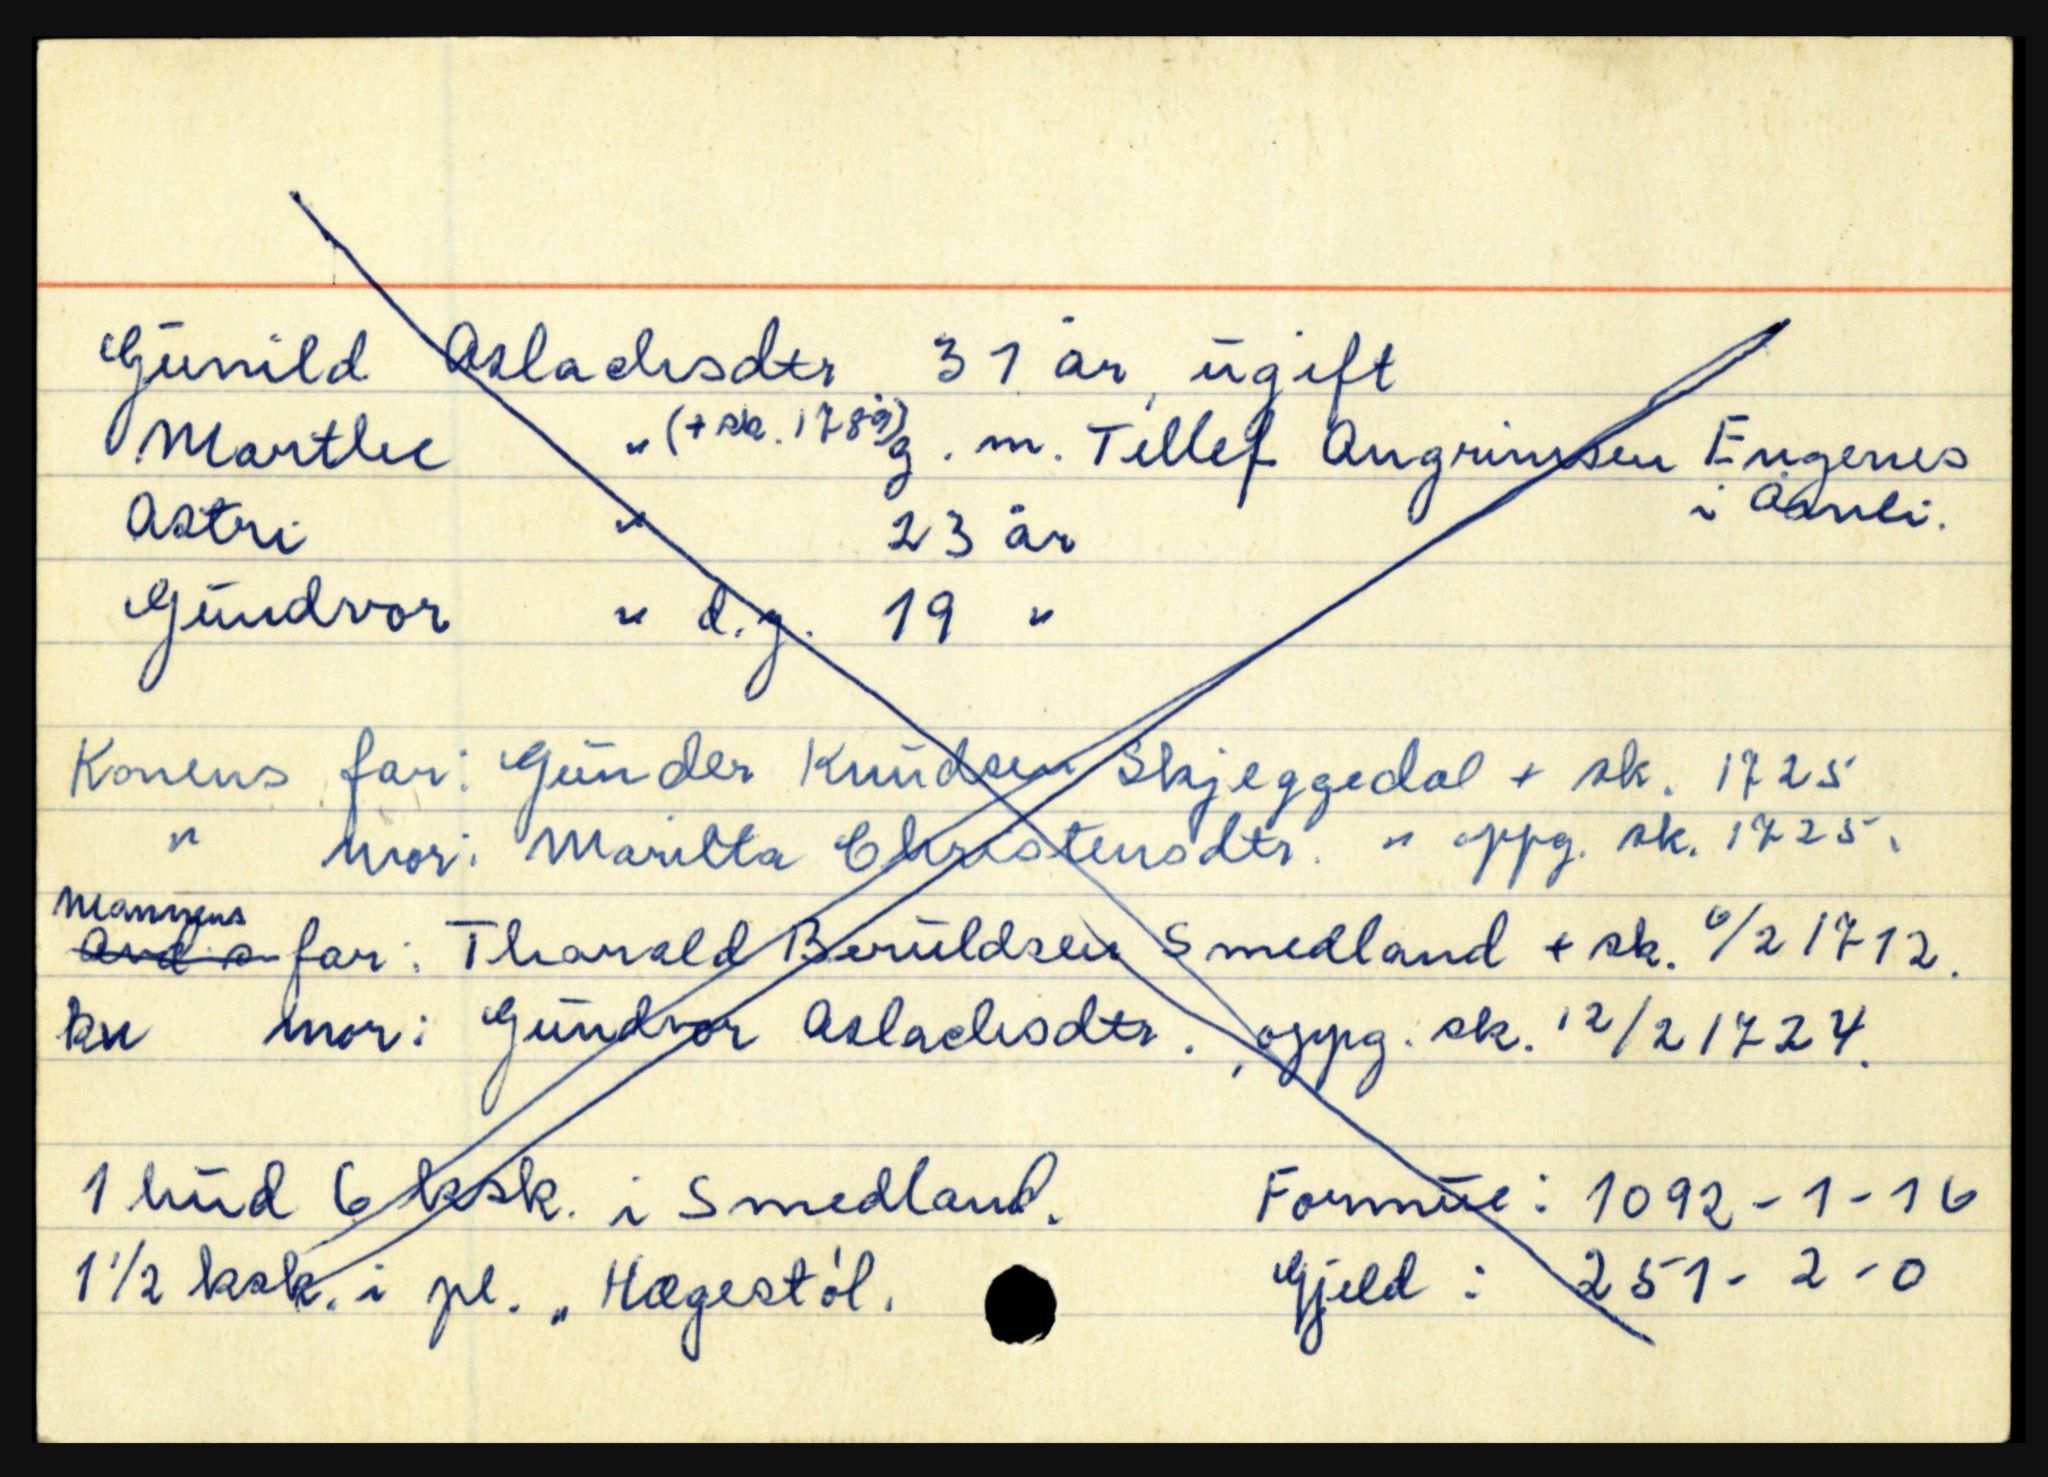 Gunild Aslachsdtr 31 år, ugift
Marthe " (+ sk. 1789) g. m. Tellef Angrimsen Engenes
i Åmli.
Astri " 23 år
Gundvor " d.y. 19 "
Konens far: Gunder Knudsen Skjeggedal + sk. 1725
" mor: Maritta Christensdtr. " oppg. sk. 1725.
Mannens
far: Tharald Beruldsen Smedland + sk. 6/2 1712.
mor: Gundvor Aslachsdtr., oppg. sk. 12/2 1724.
1 hud 6 ksk. i Smedland. Formue: 1092-1-16
1 1/2 ksk. i pl. „Hægestøl. Gjeld: 251-2-0